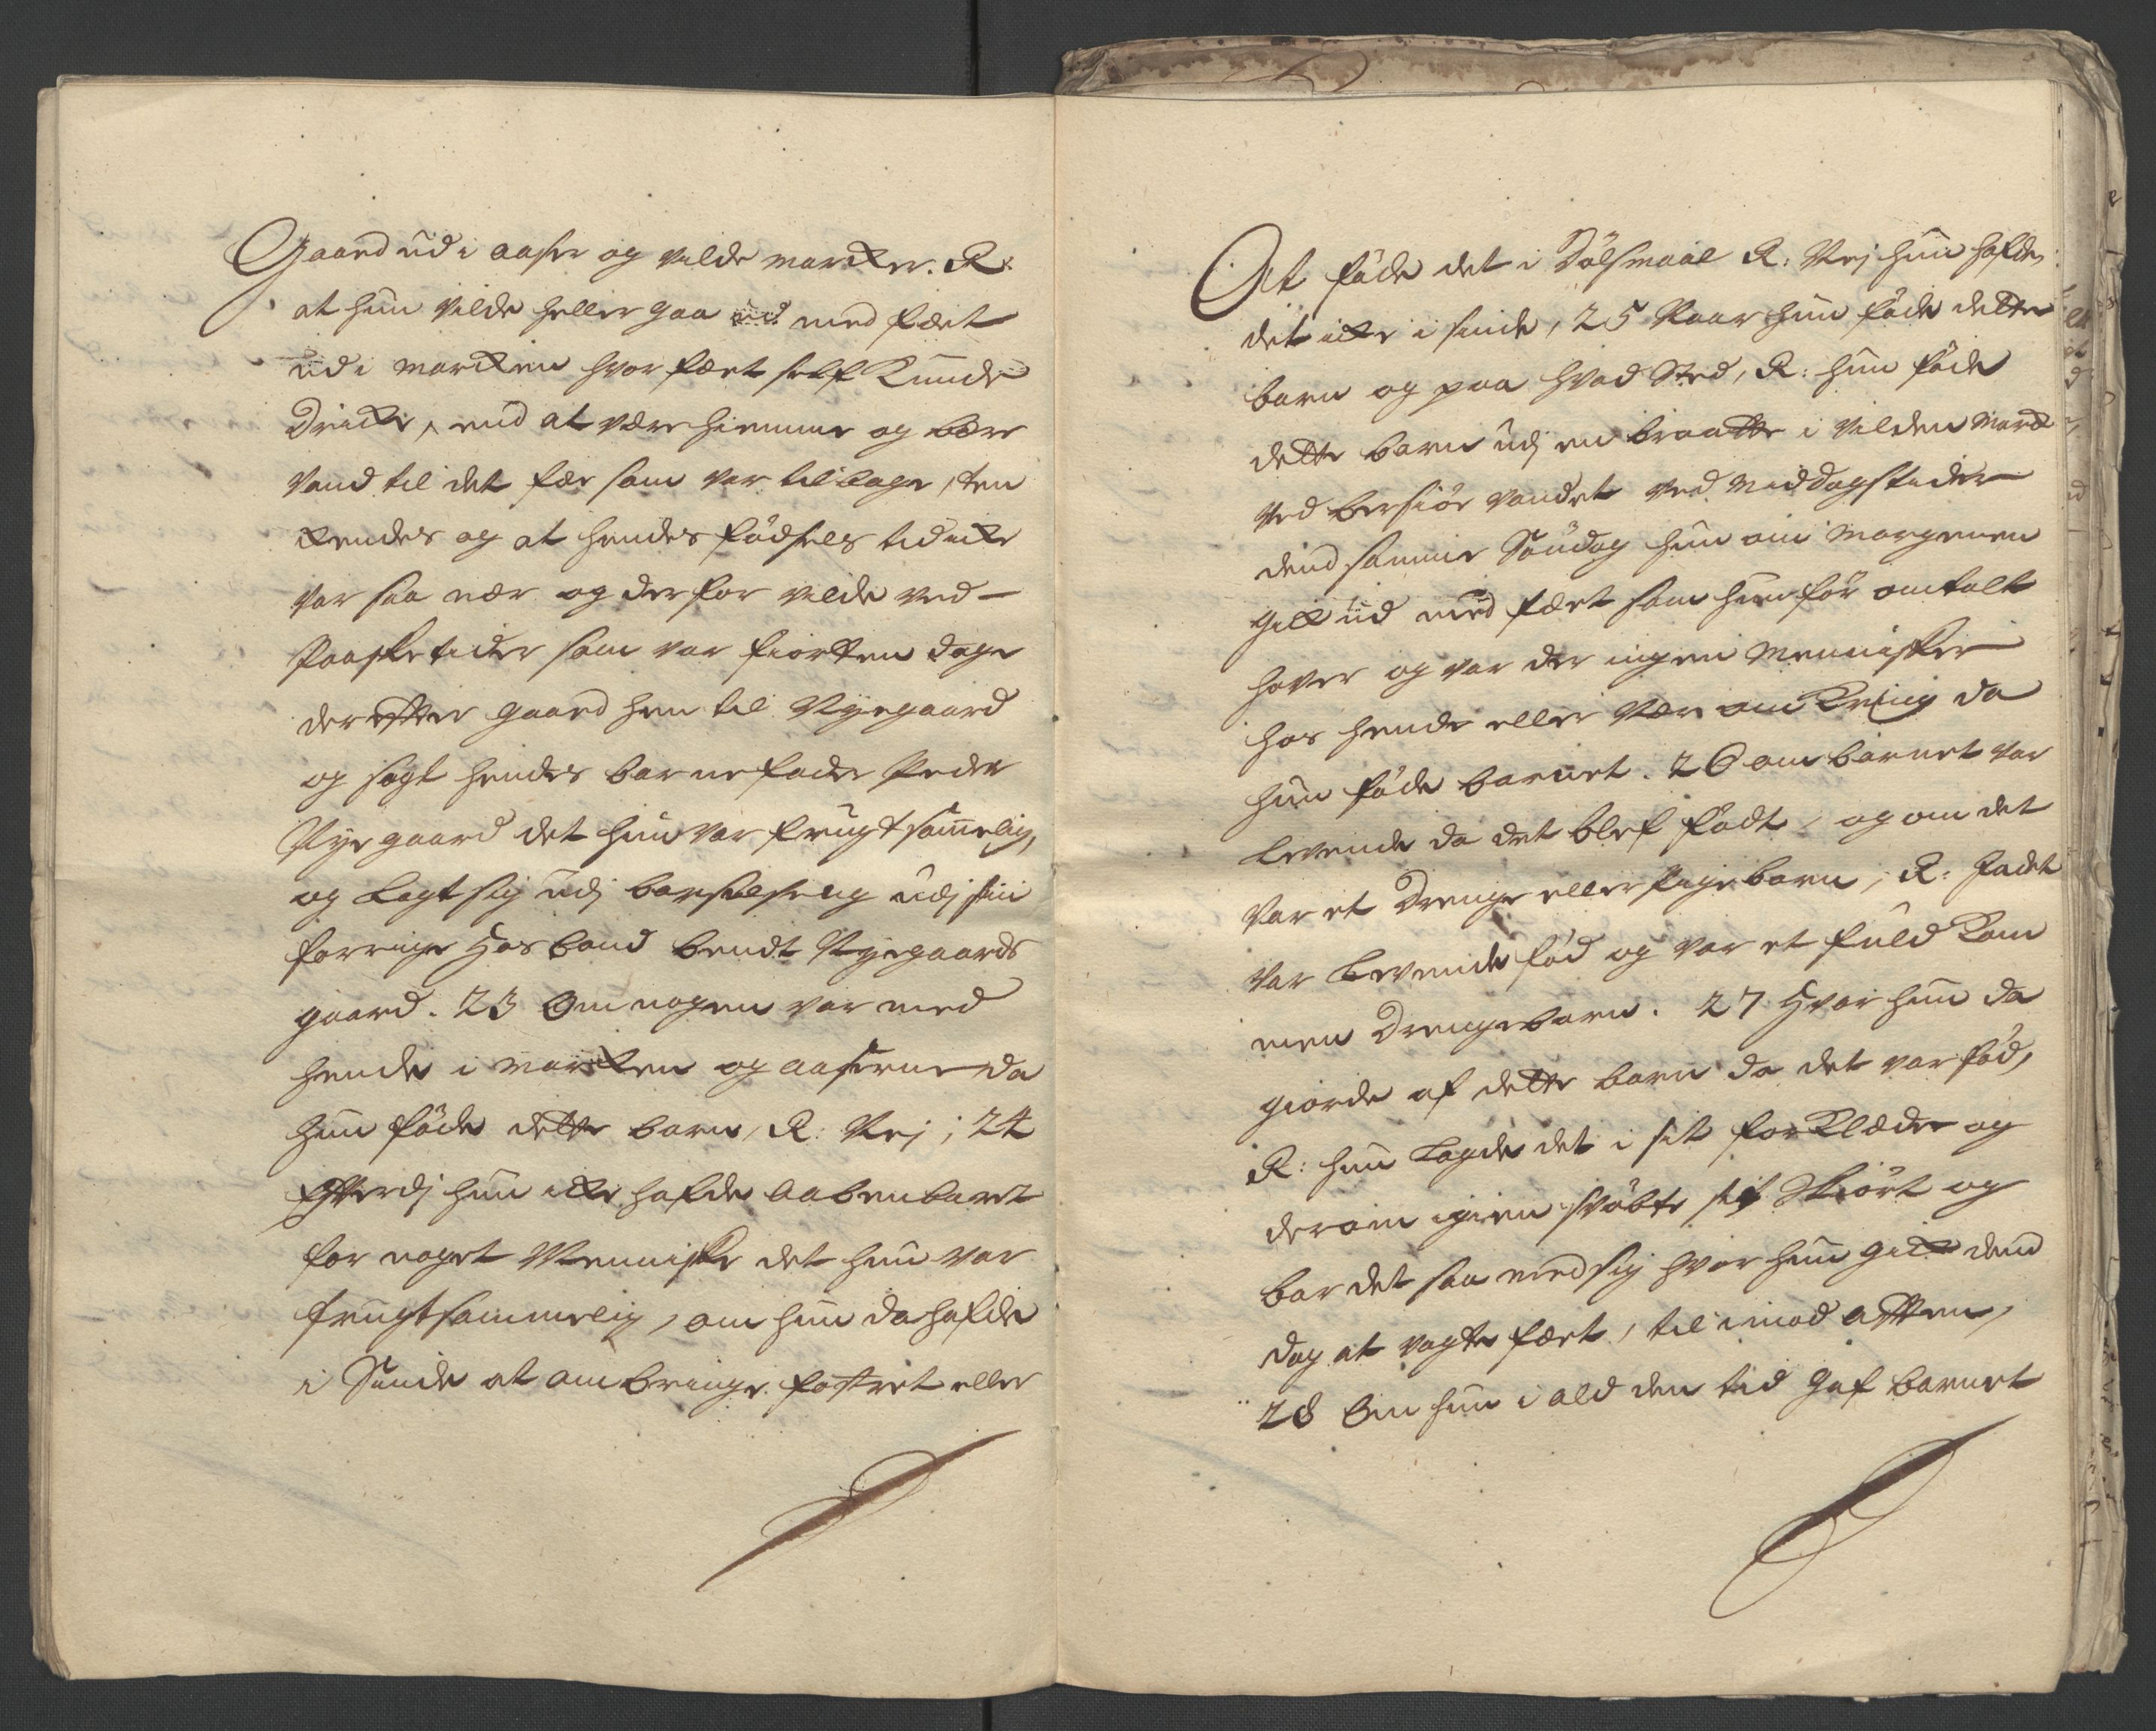 Gaaed ud i aaser og vilde marcker. R:
at hun vilde heller gaa ud med fæet
ud i marcken hvor fæet self kunde
dricke, end at være hiemme og bære
vand til det fæe som var tilbage, ten
ckendes og at hendes födsels tid icke
var saa nær og derfor vilde ved
Paaske tider som var fiorten dage
derefter gaaed hen til Nyegaard
og sagt hendes barnefader Peder
Nyegaard det hun var frugtsommelig,
og lagt sig udj barselseng udj sin
forrige Hosbond bendt Nyegaards
gaard. 23 Om nogen var med
hende i marcken og aaserne da
hun föde dette barn, R: Nej; 24
Efterdj hun icke hafde aabenbaret
for noget Menniske det hun var
frugtsommelig, om hun da hafde
i Sinde at ombringe fostret eller
At föde det i Dölsmaal R: Nej hun hafde
det icke i sinde, 25 Naar hun föde dette
barn og paa hvad Sted, R: hun föde
dette barn udj en braatte i vilden Marck
ved bersiöe vandet ved middagstider
dend samme Söndag hun om Morgenen
gick ud med fæet som hun för omtalt
hafver og var der ingen Mennisker
hos hende eller nær omkring da
hun föde barnet. 26 om barnet var
levende da det blef födt, og om det
var et Drenge eller Pige barn, R: Jadet
var levende föd og var et fuldkom
men Drengebarn. 27 Hvor hun da
giorde af dette barn da det var föd,
R: hun lagde det i sit forklæde og
derom igien svöbte sit Skiört og
bar det saa med sig hvor hun gick dend
dag at vogte fæet, til imod aften,
28 Om hun i ald den tid gaf barnet